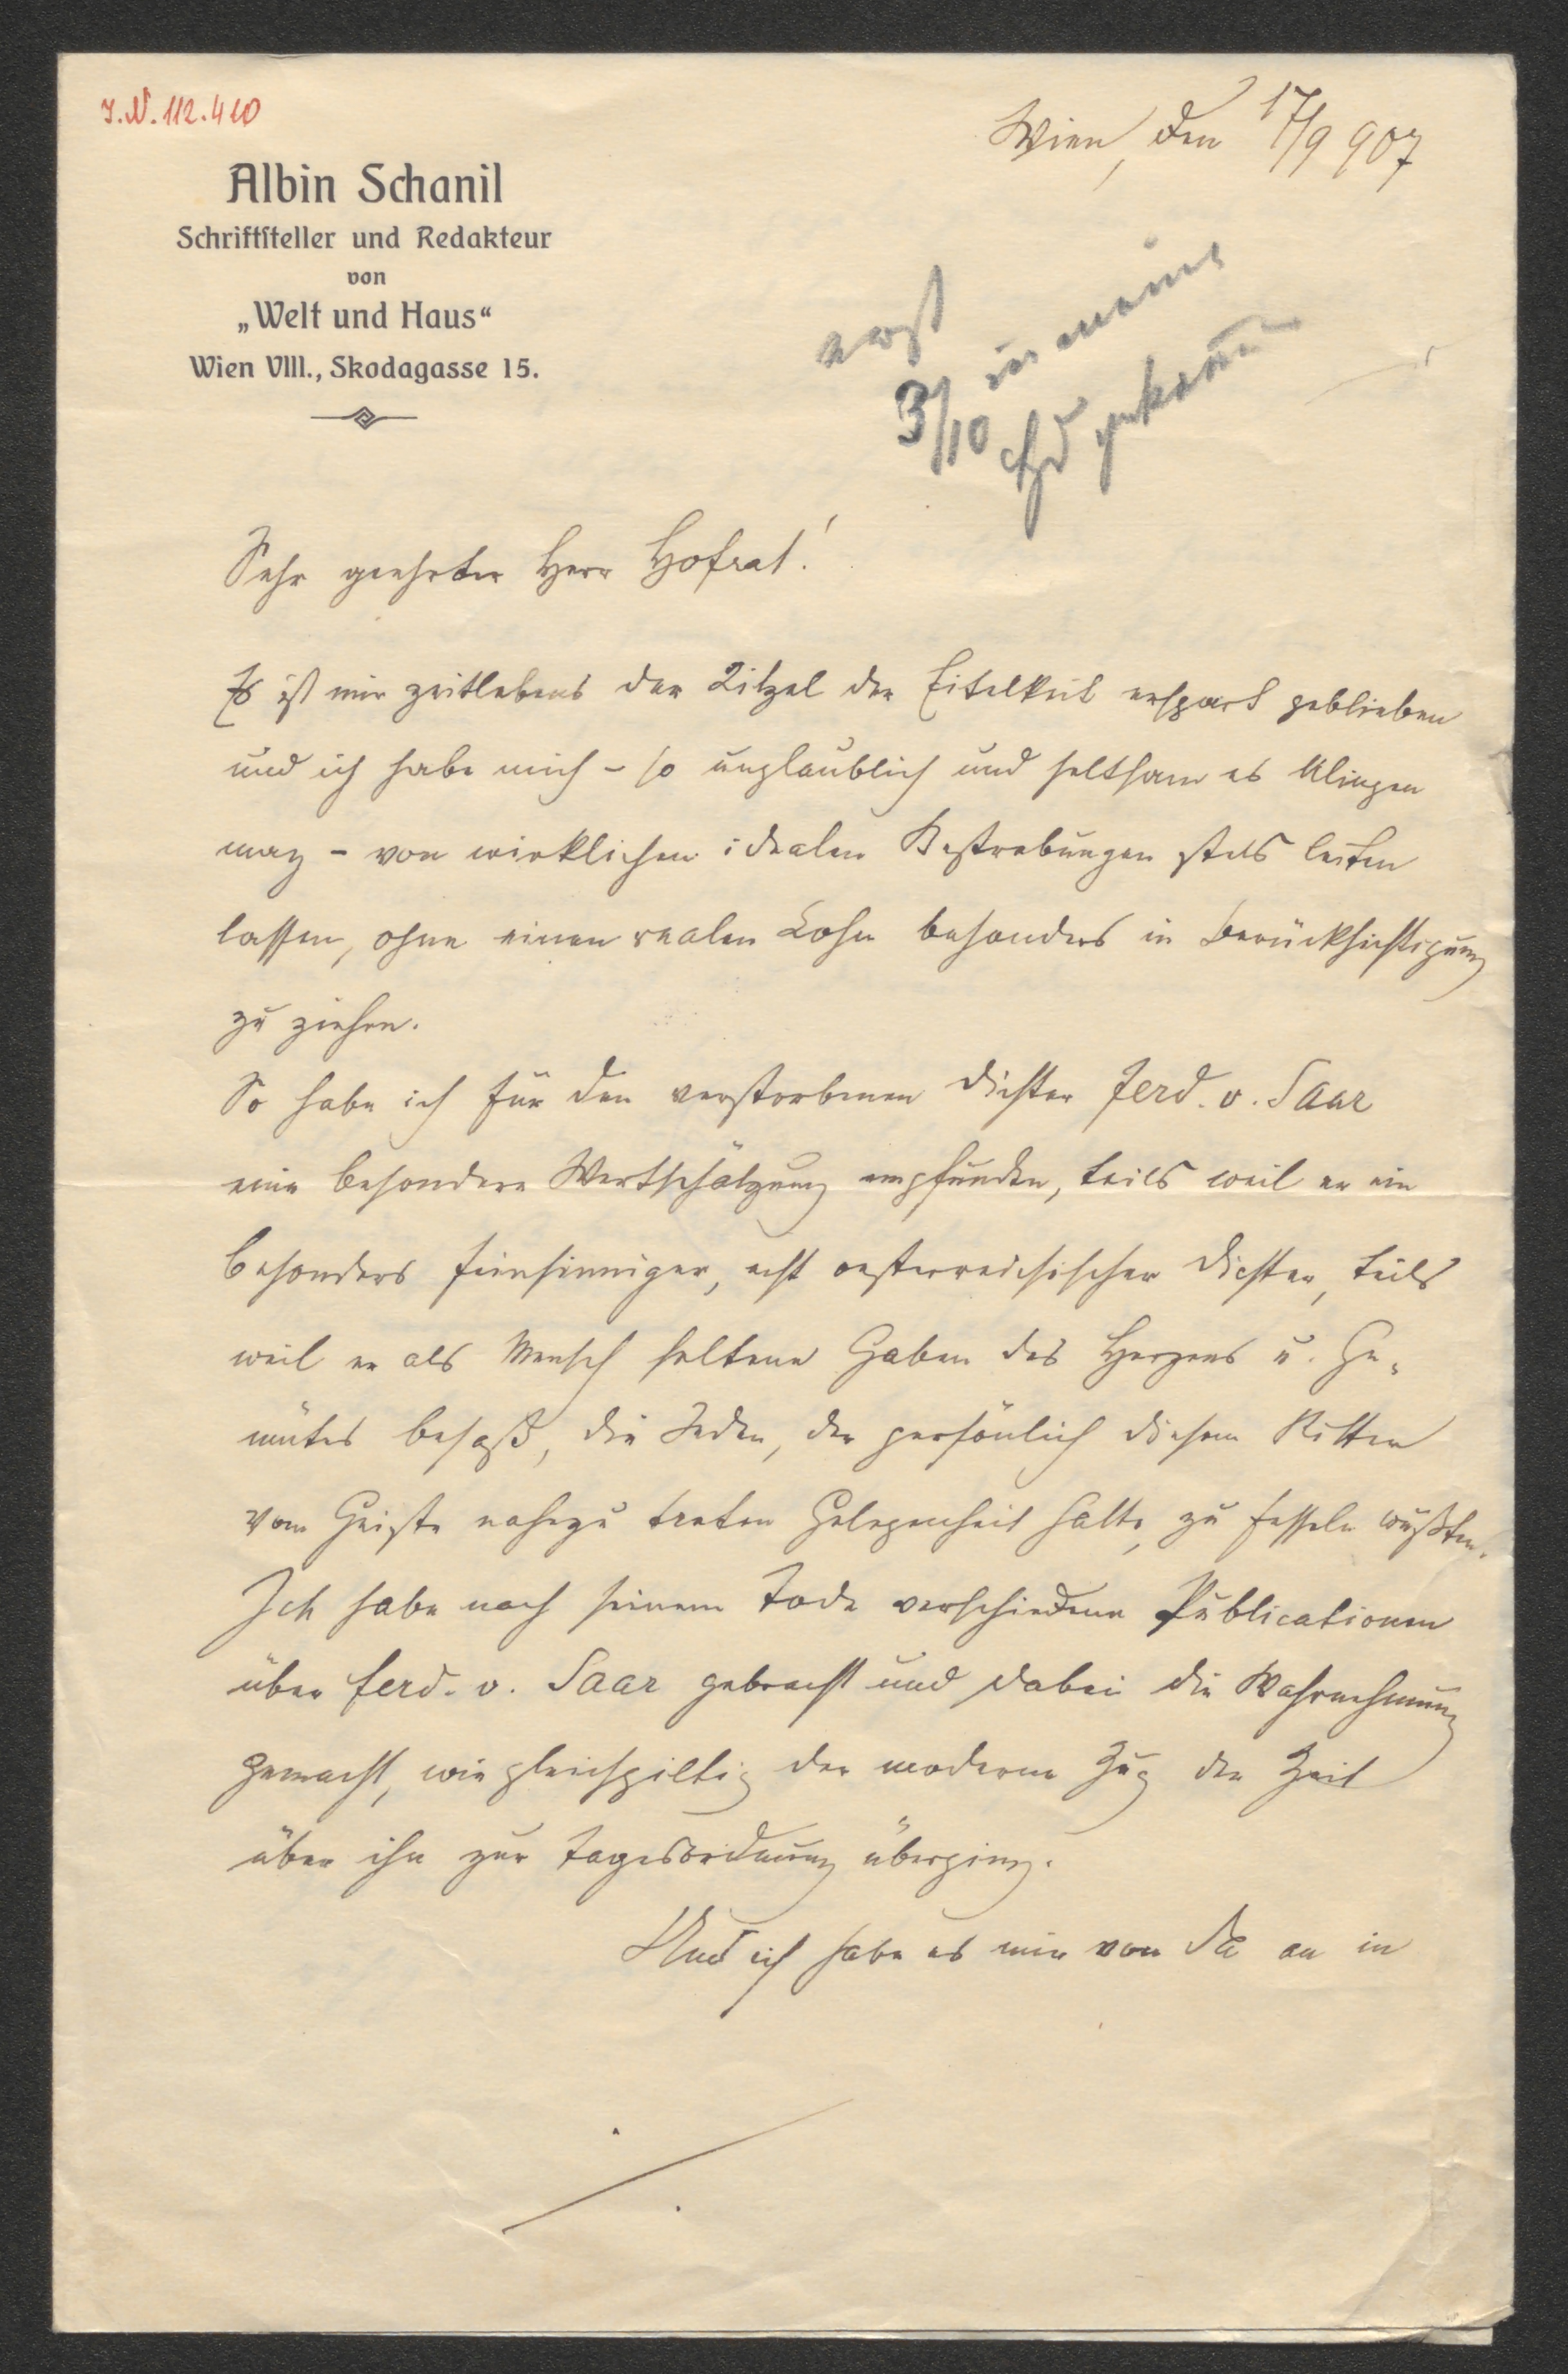 I.N. 112.410
Wien, den 17/9 907
Albin Schanil
Schriftsteller und Redakteur
von
„Welt und Haus“
Wien VIII., Skodagasse 15.
erst
3/10 in meine
Hd gekommen
Sehr geehrter Herr Hofrat!
Es ist mir zeitlebens der Kitzel der Eitelkeit erspart geblieben
und ich habe mich – so unglaublich und seltsam es klingen
mag – von wirklichen idealen Bestrebungen stets leiten
lassen, ohne einen realen Lohn besonders in Berücksichtigung
zu ziehen.
So habe ich für den verstorbenen Dichter Ferd. v. Saar
eine besondere Wertschätzung empfunden, teils weil er ein
besonders feinsinniger, echt oesterreichischer Dichter, teils
weil er als Mensch seltene Gaben des Herzens u. Ge-
mütes besaß, die Jeden, der persönlich diesem Ritter
vom Geiste nahezu treten Gelegenheit hatte, zu fesseln wußten.
Ich habe nach seinem Tode verschiedene Publicationen
über Ferd. v. Saar gebracht und dabei die Wahrnehmung
gemacht, wie gleichgiltig der moderne Zug der Zeit
über ihn zur Tagesordnung überging.
Und ich habe es mir von da an in